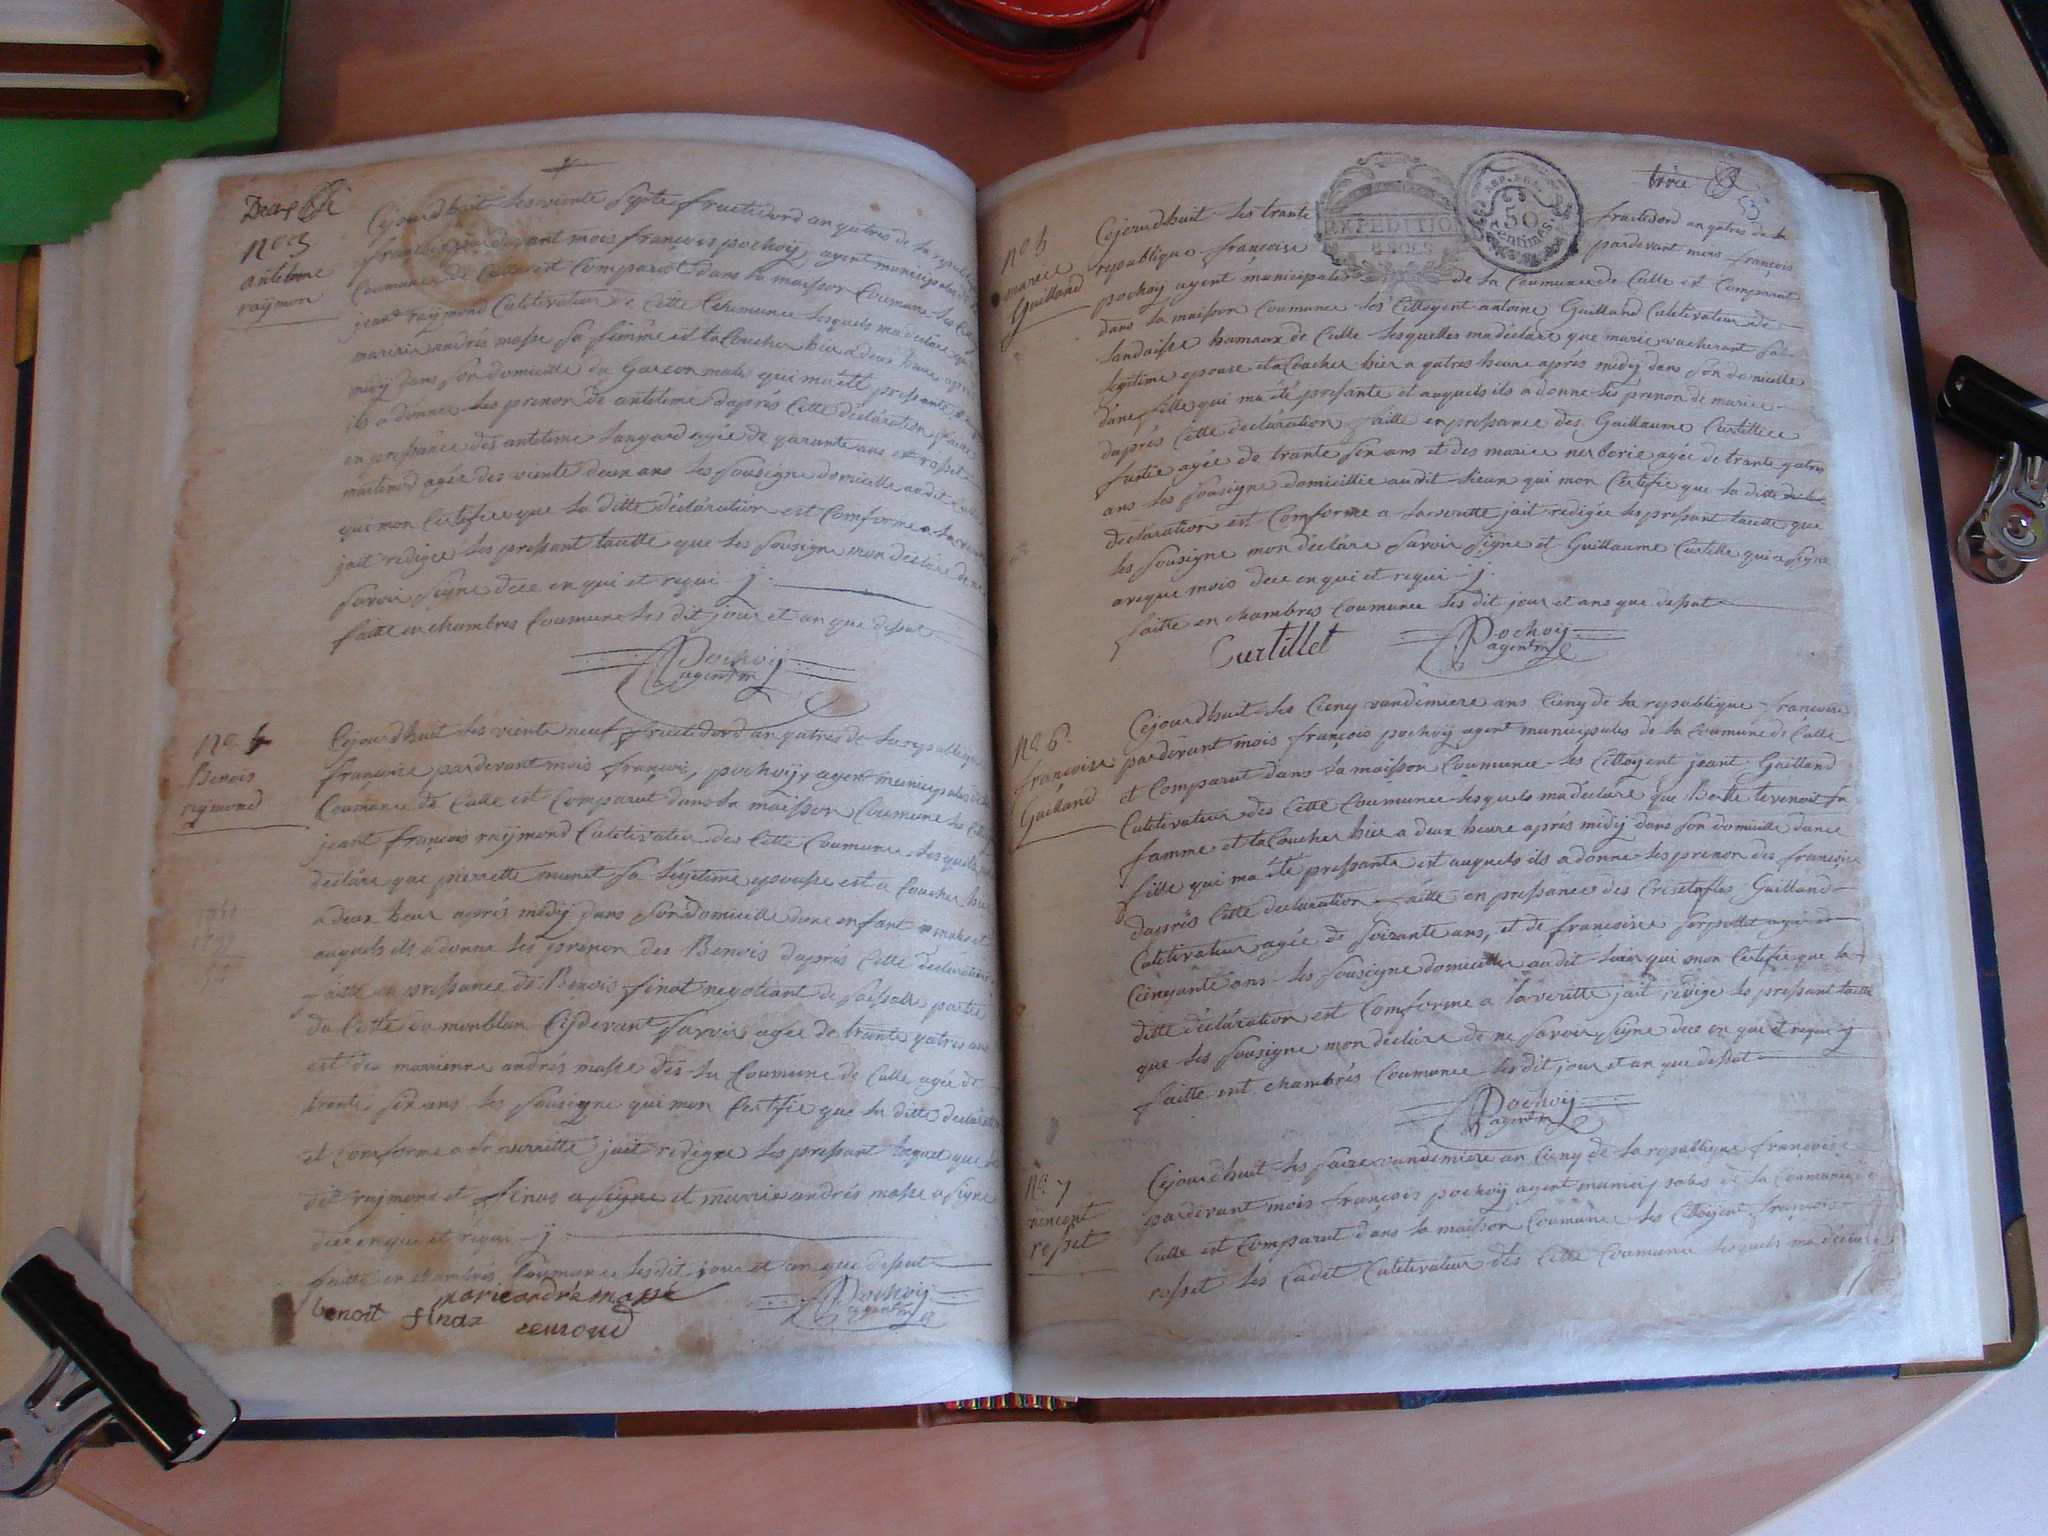 no 3
antelme
raÿmon
Cejourdhuit les viente septe fructidord an quatres de la republ
françoise pardevant mois françois pochoÿ agent municipales de
Coumune de Culle est Comparut dans la maisson Coumune les
jeant raÿmond Cultivateur de Cette Coumune lesquels ma declare que
andrés masse sa femme est ta Coucher hier a deux heure apres
midÿ dans son domicille du Garcon male qui ma été pressante
ils a donne les prenon de antelme daprés Cette déclaration faite
en pressance des antelme ageé de quarante ans et rosset
ageé des viente deux ans les sousigne domicille au dit
qui mon Certifiee que la ditte déclaration est Comforme a la
jait redigeé les pressant taette que les sousigne mon declare de ne
savoir signe dece en qui et requi j.
faitte en chambres Coumune les dit jour et an que dessut
Pochoÿ
agent m
no 4
Benois
reymond
Cejourdhuit les viente neuf fructidord an quatres de la republique
françoise pardevant mois françois pochoÿ agent municipales de la
Coumune de Culle est Comparut dans la maisson Coumune les
jeant françois raÿmond Cultivateur des Cette Coumune lesquels ma
declare que pierrette munet sa légitime epousse est a Coucher hier
a deux heur aprés midÿ dans son domicille dune enfant male et
auquels ils a donne les prenon des Benois daprés Cette declaration
faitte en pressance de Benois finat negotiant de partie
du monblan Cÿdevant savoir ageé de trante quatres ans
est des andrés masse des la Coumune de Culle ageé de
trante six ans les sousigne qui mon Certifie que la ditte declaration
et Comforme a la jait redigee les pressant que le
dit rajmond et finas a signe et andrés masse a signe
dece en qui et requi j.
faitte en chambres Coumune les dit jour et an que dessut
marieandré masse
benoit finaz remond
Pochoÿ
agent m
EXPEDITION
REP. FRA.
50
centimes
53
no 5
mariee
Guilland
Cejourdhuit les trante fructidord an quatres de la
republique françoise pardevant mois françois
pochoÿ agent municipales de la Coumune de Culle est Comparut
dans la maisson Coumune les Cittoyent antoine Guilland Cultivateur de
landaisse hamaux de Culle lesquelles ma declare que marie vacherant sa
legitime epouse et a Coucher hier a quatres heure aprés midÿ dans son domicille
dune fille qui ma été pressante et auquels ils a donne les prenon de mariee
daprés Cette declaration faitte en pressance des Guillaume Curtillee
ageé de trante six ans et des mariee ageé de trante quatres
ans les sousigne domicillie au dit lieux qui mon Certifie que la ditte
déclaration est Comforme a la veritte jait redigée les pressant taette que
les sousigne mon declare savoir signe et Guillaume Curtille qui a signe
aveque mois dece en qui et requi j.
faitte en chambres Coumunee les dit jour et ans que dessut
Curtillet
Pochoÿ
agent m
No 6
françoise
Guilland
Cejourdhuit les Cienq vandemiere ans Cienq de la republique françoise
pardevant mois françois pochoÿ agent municipales de la Coumune de Culle
et Comparut dans la maisson Coumunee les Cittoyent jeant Guilland
Cultivateur des Cette Coumunee lesquels ma declare que Bette tevenoit sa
famme et ta Coucher hier a deux heure apres medÿ dans son domicille dunee
fille qui ma été pressante est auquels ils a donne les prenon des françoise
daprés Cette declaration faitte en pressance des Cristofles Guilland
Cultivateur ageé de soizante ans, et de françoise ageé de
Cienquante ans les sousigne domicille au dit luix qui mon Certifie que la
ditte déclaration est Comforme a la veritte jait redige les pressant taette
que les sousigne mon declare de ne savoir signe dece en que et requi j
faitte ent chambrés Coumunee les dit jour et an que dessut
Pochoÿ
agent m
No 7
rosset
Cejourdhuit les saize vandemiere an Cienq de la republique françoise
pardevant mois françois pochoÿ agent municipales de la Coumune de
Culle est Comparut dans la maisson Coumune les Cittoyent françois
rosset les Cadet Cultivateur des Cette Coumune lesquels ma declare